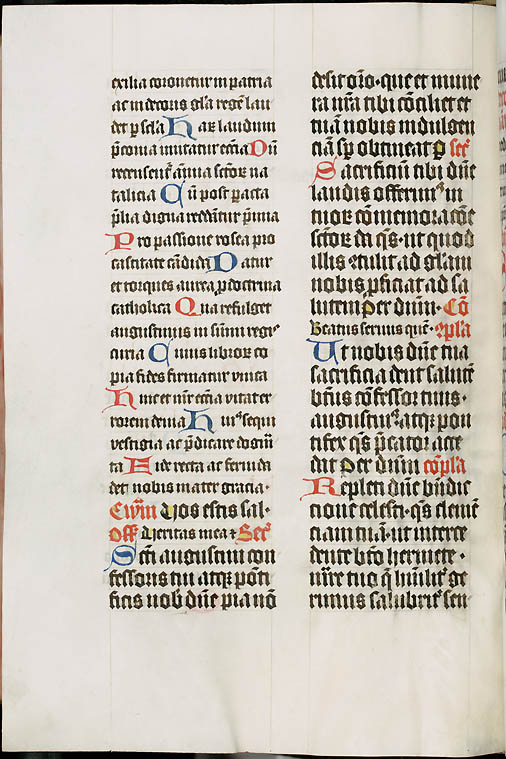 exilia coronetur in patria
ac in decoris gl̄a regē lau
det p scl̄a Harū laudum
p̄conia imitatur ecc̄ia Dū
recensent᷑ ānua sctōꝝ na
talicia Cū post pacta
p̄lia digna reddūtur p̄mia
Pro passione rosea pro
castitate cādida Datur
et torques aurea p doctrina
catholica Qua refulget
augustinus in sūmi regis
curia Cuius libroꝝ co
pia fides firmatur unica
Hinc et mr̄ ecc̄ia vitat er
rorem devia Huiꝰ sequi
vestigia ac p̄dicare dogm̄
ta Fide recta ac fervida
det nobis mater gracia·
Ewm̄ Vos estis sal·
Off Veritas mea ⁊ Secᷓ
Sc̄ti augustini con
fessoris tui atqꝫ pōti
ficis nob dn̄e pia nō
desit or̄o· que et mune
ra nr̄a tibi cōciliet et
tuā nobis indulgen
ciā sp̄ obtineat P sec᷑
Sacrificiū tibi dn̄e
laudis offerimꝰ in
tuoꝝ cōmemoracōe
sctōꝝ da qs̄· ut quod
illis ɔtulit ad gl̄am
nobis pficiat ad sa
lutem Per dn̄m· Cō
Beatus servus quē· ɔpl̄a
Ut nobis dn̄e tua
sacrificia dent salutē
bt̄us cōfessor tuus·
augustinꝰ atqꝫ pon
tifex qs̄ p̄cator acce
dat Per dn̄m cōpl̄a
Repleti dn̄e bn̄dic
tione celesti· qs̄ clemē
ciam tuā· ut interce
dente bt̄o hermete·
mr̄e tuo q̄ hūilit᷑ ge
rimus salubrit᷑ sen